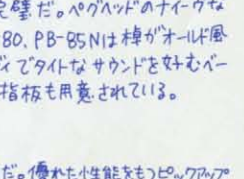 壁だ。ペグヘッドのナイーヴな
80、PB-85Nは棹がオールド風
ィでタイトなサウンドを好むベー
指板も用意されている。
だ。優れた性能をもつピックアップ